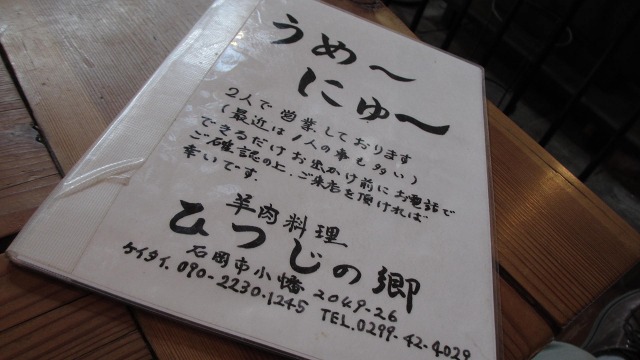 うめ〜
にゅ〜
2人で営業しております
(最近は1人の事も多い)
できるだけお出かけ前にお電話で
ご確認の上、ご来店を頂ければ
幸いです。
羊肉料理
ひつじの郷
石岡市小幡2049-26
ケイタイ.090-2230-1245 TEL.0299-42-4029